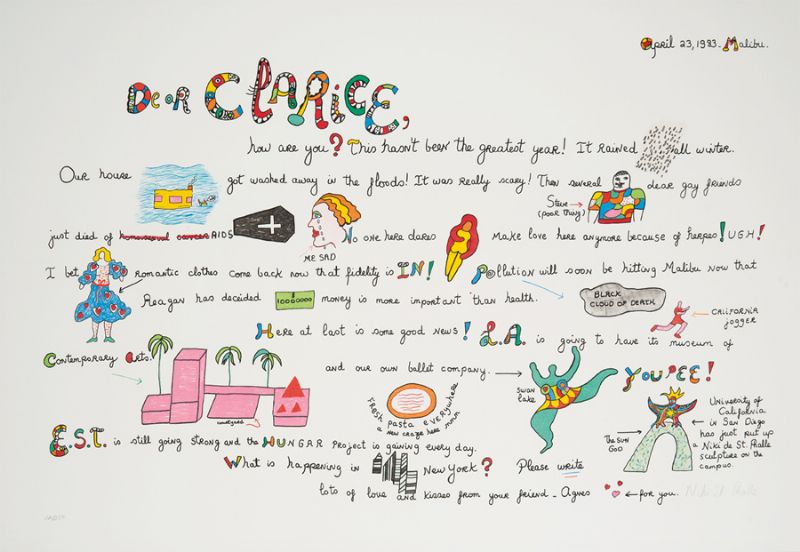 April 23, 1983. Malibu.
Dear Clarice,
how are you? This hasn't been the greatest year! It rained all winter.
Our house got washed away in the floods! It was really scary! Then several dear gay friends
Steve (poor thing)
just died of homosexual cancer AIDS No one here dares make love here anymore because of herpes! UGH!
ME SAD
I bet romantic clothes come back now that fidelity is IN! Pollution will soon be hitting Malibu now that
Reagan has decided 10000000 money is more important than health.
BLACK CLOUD OF DEATH
CALIFORNIA JOGGER
Here at last is some good news! L.A. is going to have its museum of
Contemporary Arts! and our own ballet company. YOUPEE!
courtyard
FRESH PASTA EVERYWHERE
a new craze here mmm
swan lake
The SUN GOD
University of California in San Diego has just put up a Niki de St. Phalle sculpture on the campus.
E.S.T. is still going strong and the HUNGAR Project is gaining every day.
What is happening in New York? Please write
lots of love and kisses from your friend - Agnes for you.